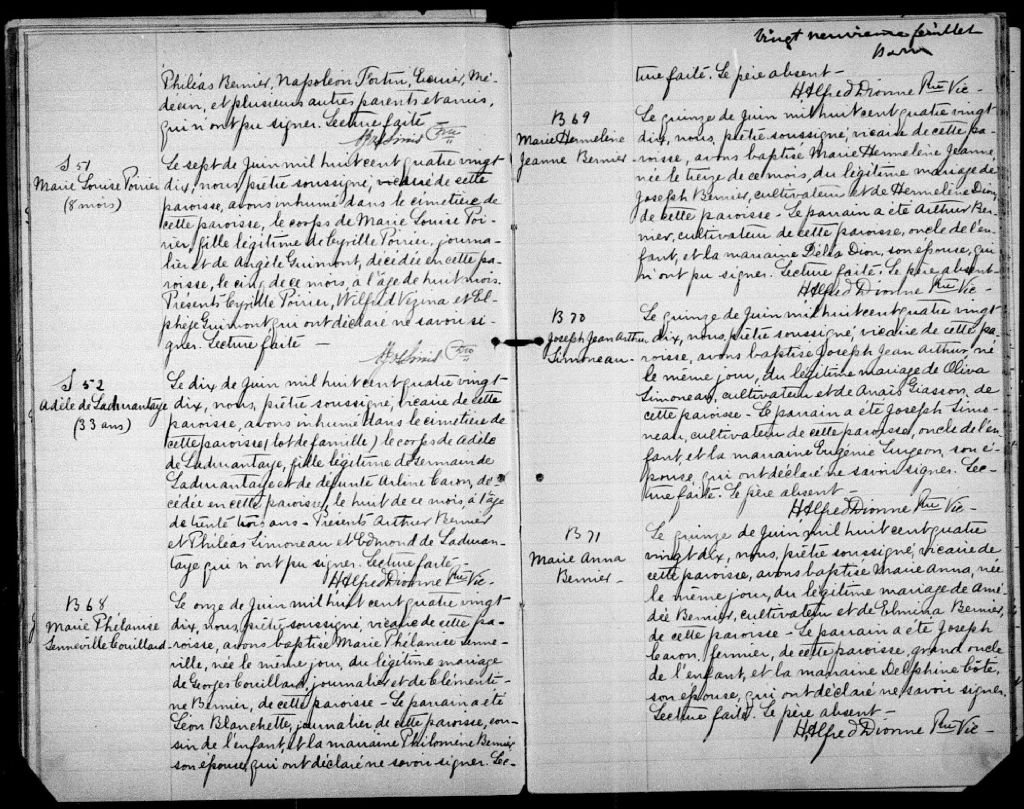 Philéas Bernier, Napoléon Fortin, Ecuier, Mé-
decin, et plusieurs autres parents et amis,
qui n'ont pu signer. Lecture faite
Ptre
S 51
Marie Louise Poirier
(8 mois)
Le sept de Juin mil huit cent quatre vingt
dix, nous, prêtre soussigné, vicaire de cette
paroisse, avons inhumé dans le cimetière de
cette paroisse, le corps de Marie Louise Poi-
rier, fille légitime de Cyrille Poirier, journa-
lier et de Angèle Guimont, décédée en cette pa-
roisse, le cinq de ce mois, à l'âge de huit mois.
Présents Cyrille Poirier, Wilfrid Vézina et El-
phège Guimont qui ont déclaré ne savoir si-
gner. Lecture faite —
S 52
Adèle de Ladurantaye
(33 ans)
Le dix de Juin mil huit cent quatre vingt
dix, nous, prêtre soussigné, vicaire de cette
paroisse, avons inhumé dans le cimetière de
cette paroisse (lot de famille) le corps de Adèle
de Ladurantaye, fille légitime de Germain de
Ladurantaye et de défunte Arline Caron, dé-
cédée en cette paroisse, le huit de ce mois, à l'âge
de trente trois ans – Présents Arthur Bernier
et Philéas Simoneau et Edmond de Laduran-
taye qui n'ont pu signer. Lecture faite –
H Alfred Dionne Ptre Vic –
B 68
Marie Phélanise
Senneville Couillard
Le onze de Juin mil huit cent quatre vingt
dix, nous, prêtre soussigné, vicaire de cette pa-
roisse, avons baptisé Marie Phélanise Senne-
ville, née le même jour, du légitime mariage
de Georges Couillard, journalier et de Clémenti-
ne Bernier, de cette paroisse – Le parrain a été
Léon Blanchette, journalier de cette paroisse, cou-
sin de l'enfant, et la marraine Philomène Bernier
son épouse, qui ont déclaré ne savoir signer. Lec-
Vingt neuvième feuillet
ture faite. Le père absent –
H Alfred Dionne Ptre Vic –
B 69
Marie Hermeline
Jeanne Bernier
Le quinze de Juin mil huit cent quatre vingt
dix, nous, prêtre soussigné, vicaire de cette pa-
roisse, avons baptisé Marie Hermeline Jeanne,
née le treize de ce mois, du légitime mariage de
Joseph Bernier, cultivateur et de Hermeline Dion,
de cette paroisse – Le parrain a été Arthur Ber-
nier, cultivateur de cette paroisse, oncle de l'en-
fant, et la marraine Délia Dion, son épouse, qui
n'ont pu signer. Lecture faite. Le père absent –
H Alfred Dionne Ptre Vic –
B 70
Joseph Jean Arthur
Simoneau –
Le quinze de Juin mil huit cent quatre vingt
dix, nous, prêtre soussigné, vicaire de cette pa-
roisse, avons baptisé Joseph Jean Arthur, né
le même jour, du légitime mariage de Oliva
Simoneau, cultivateur et de Anaïs Giasson, de
cette paroisse – Le parrain a été Joseph Simo-
neau, cultivateur de cette paroisse, oncle de l'en-
fant, et la marraine Eugénie Turgeon, son é-
pouse, qui ont déclaré ne savoir signer. Lec-
ture faite. Le père absent –
H Alfred Dionne Ptre Vic –
B 71
Marie Anna
Bernier –
Le quinze de Juin mil huit cent quatre
vingt dix, nous, prêtre soussigné, vicaire de
cette paroisse, avons baptisé Marie Anna, née
le même jour, du légitime mariage de Amé-
dé Bernier, cultivateur et de Elmina Bernier,
de cette paroisse – Le parrain a été Joseph
Caron, fermier, de cette paroisse, grand oncle
de l'enfant, et la marraine Delphine Côté,
son épouse, qui ont déclaré ne savoir signer.
Lecture faite. Le père absent –
H. Alfred Dionne Ptre Vic –